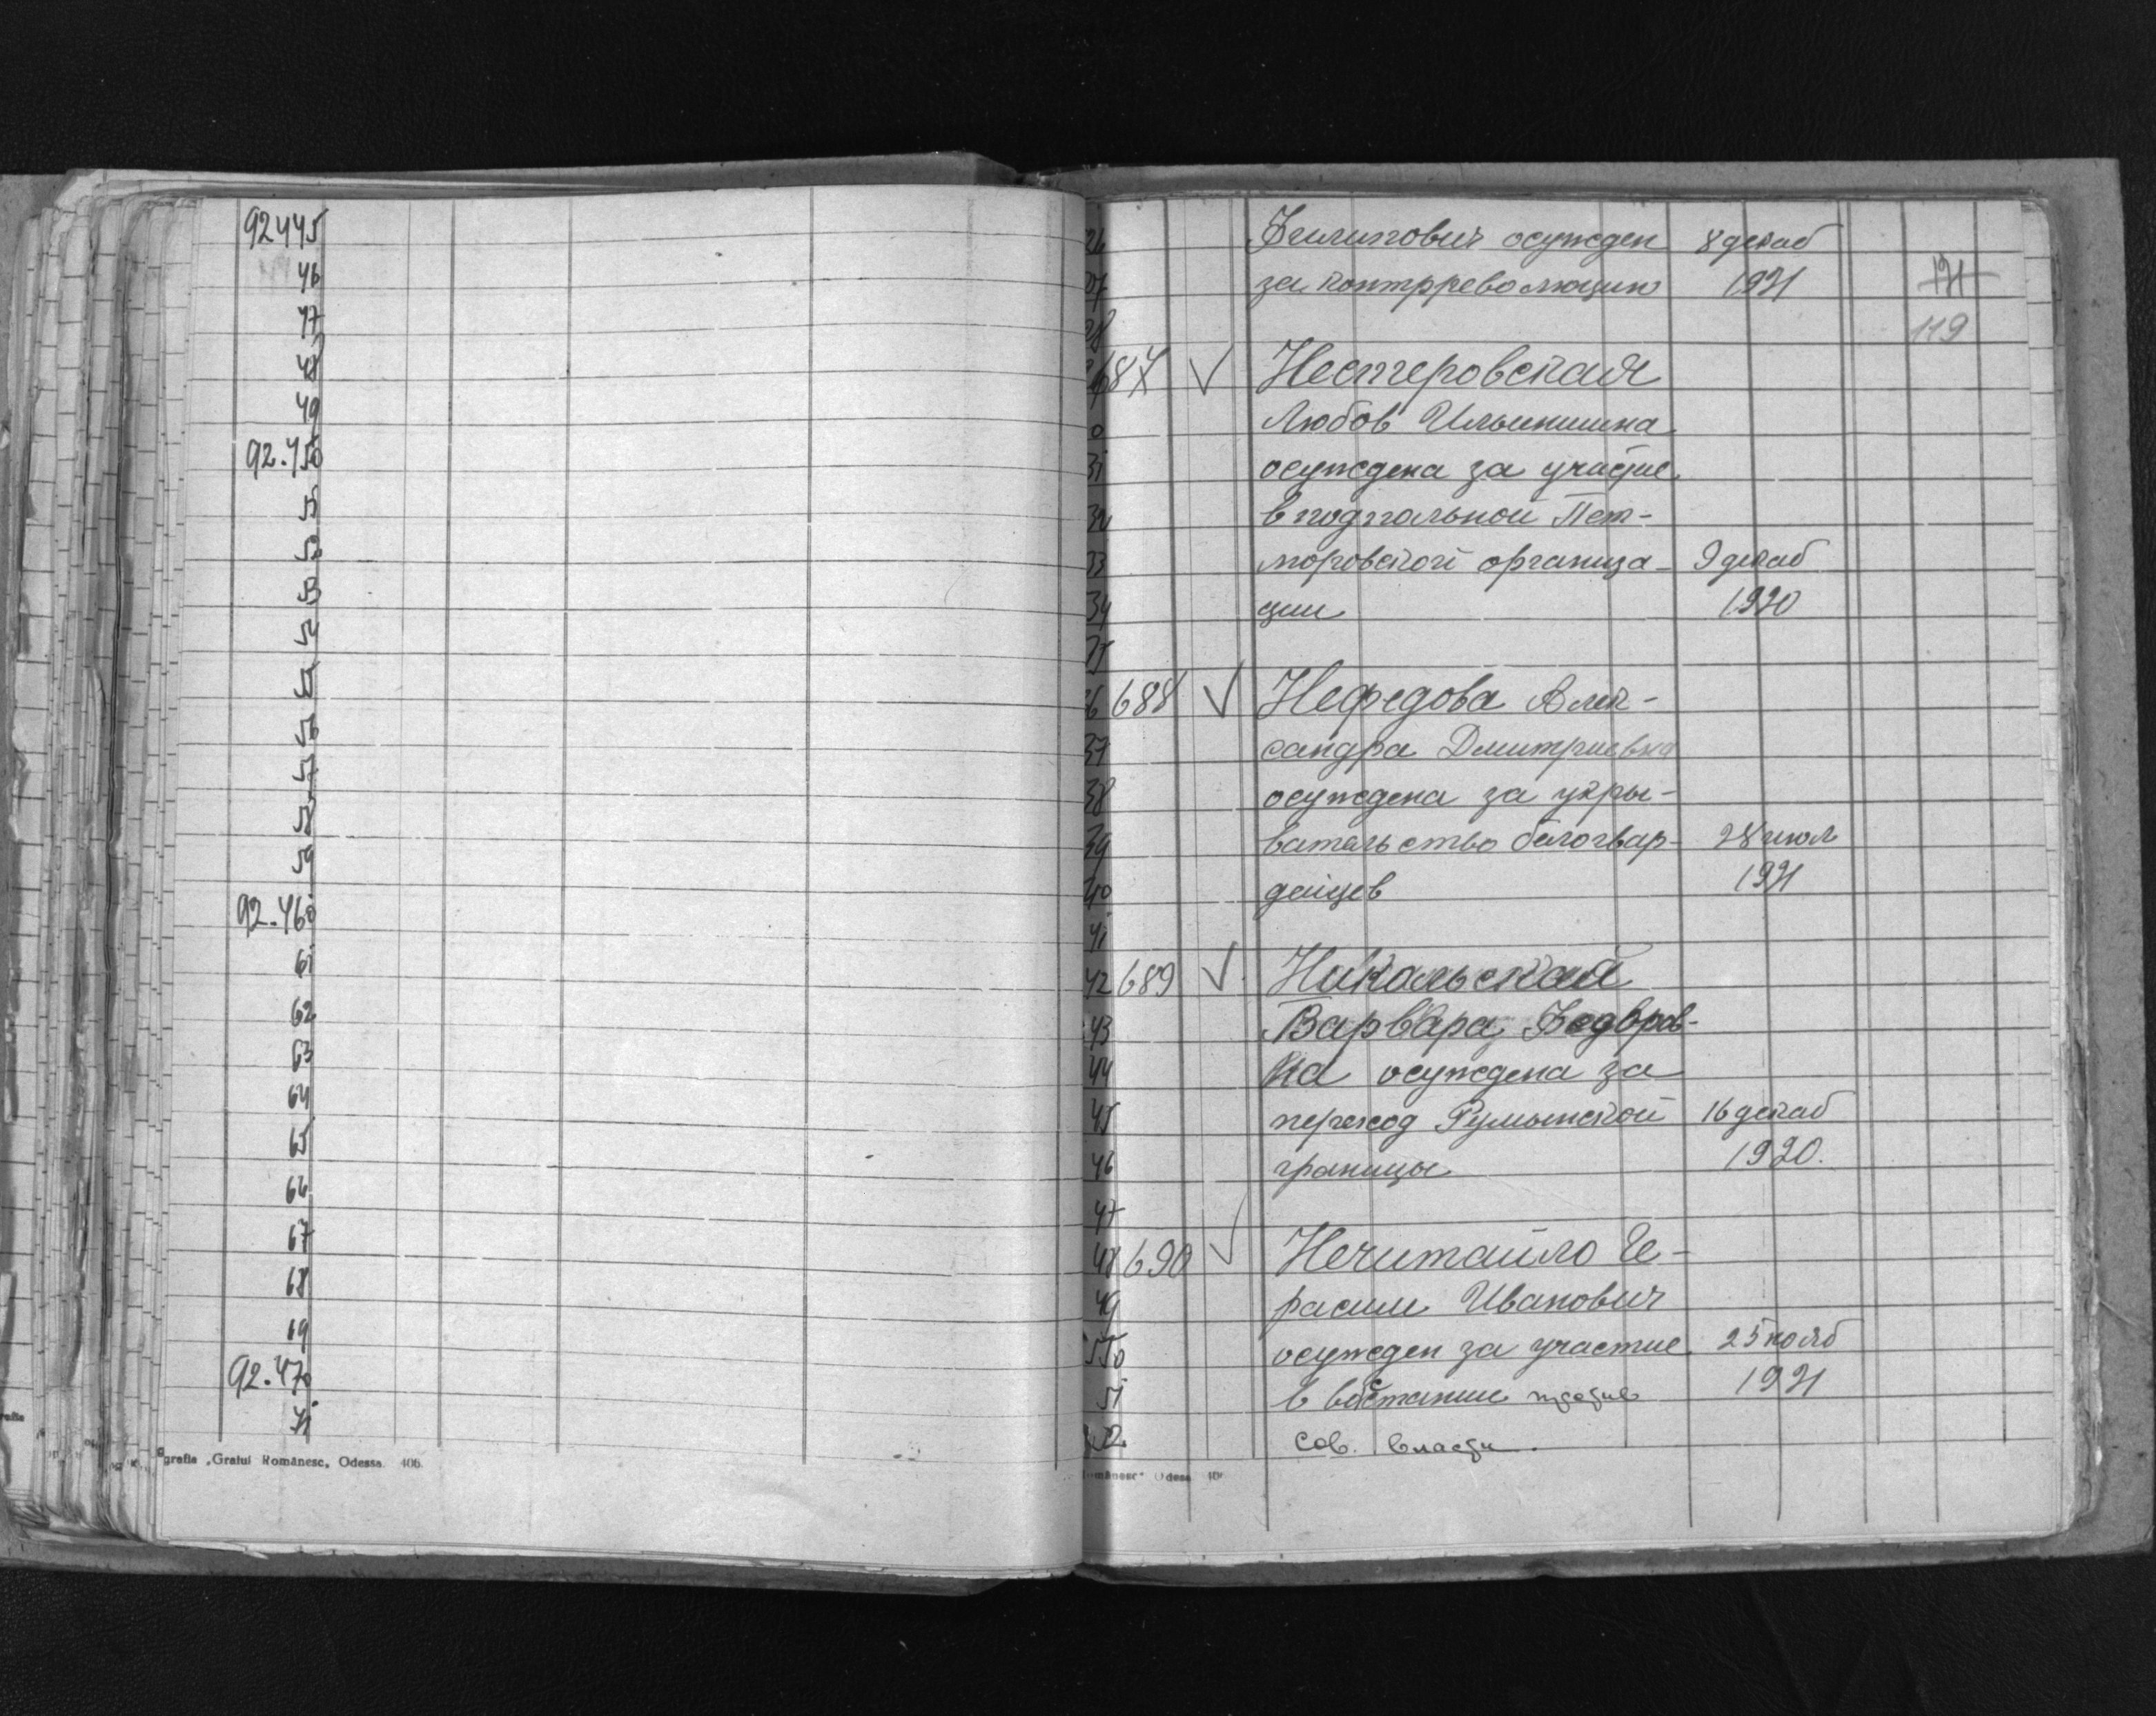 92445
46
47
48
49
92.450
51
52
53
54
55
56
57
58
59
92.460
61
62
63
64
65
66
67
68
69
92.470
71
grafia „Graiul Românesc„ Odessa 406.
Филипович осужден 8 декаб
за контрреволюцию 1921 121
119
687 Нестеровская
Любов Ильинишна
осуждена за участие
31
в подпольной Пет-
32
люровской организа- 9 декаб
33
ции 1920
34
688 Нефедова Алек-
сандра Дмитриевна
37
осуждена за укры-
38
вательство белогвар- 28 июл
39
дейцев 1921
40
41
42 689 Никольская
43 Варвара Федоров-
44 на осуждена за
45 переход Румынской 16 декаб
46 границы 1920.
47
48 690 Нечитайло Ге-
49 расим Иванович
550 осужден за участие 25 нояб
51 в востание против 1921
52 Сов. власти.
omânesc" Odess 40